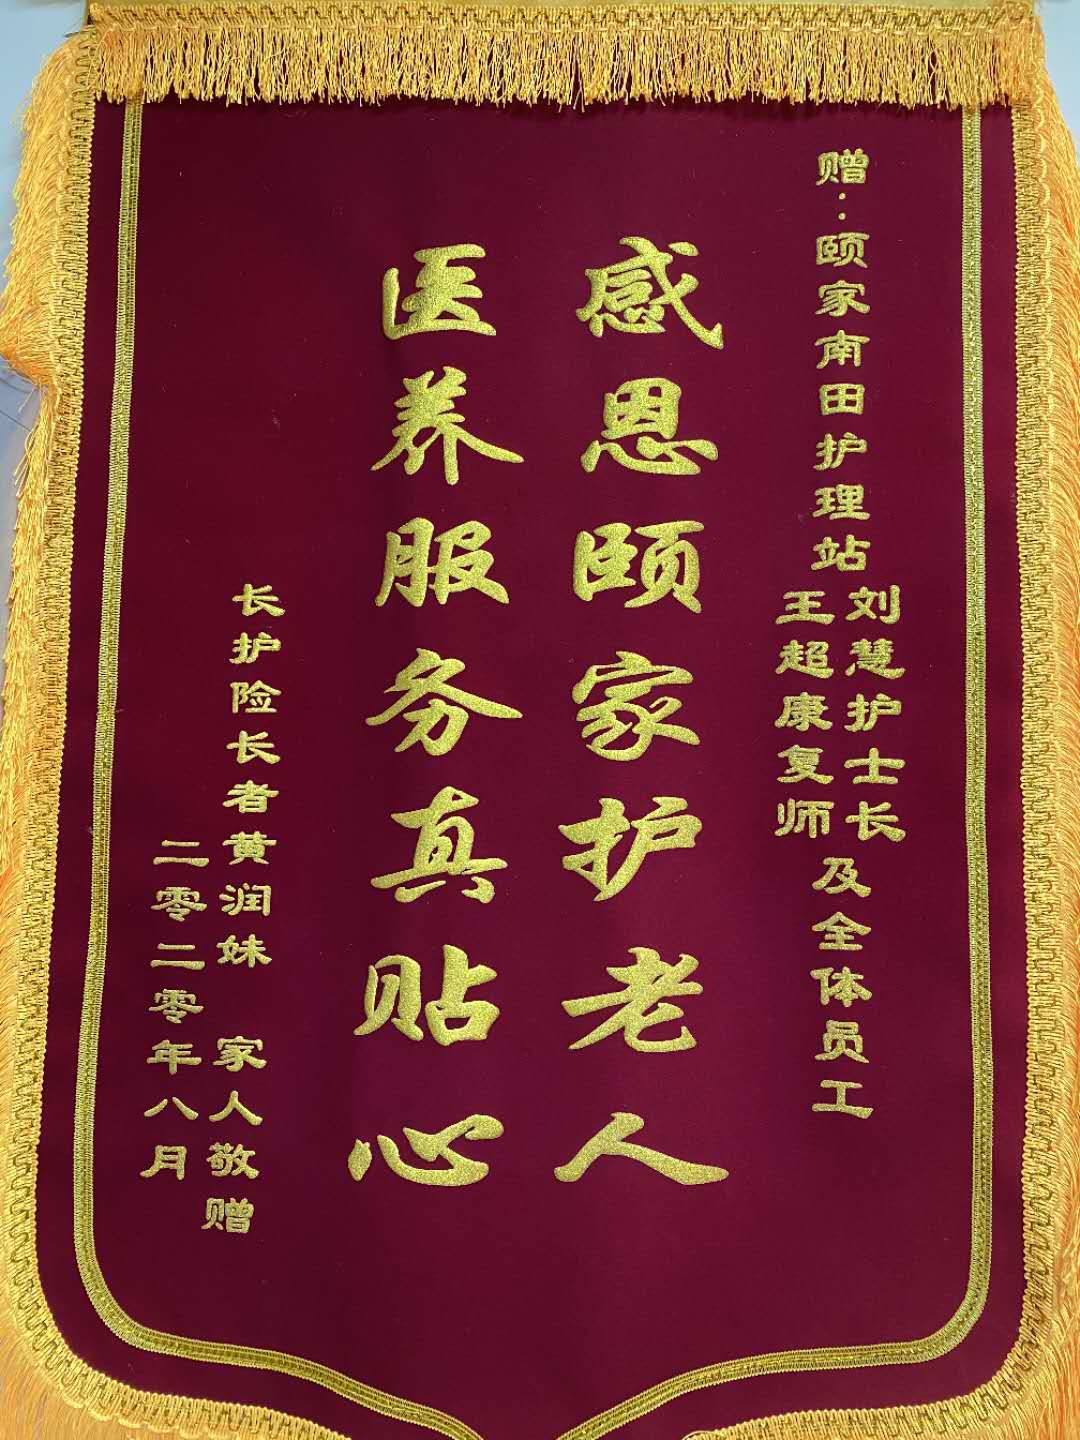 赠：颐家南田护理站
刘慧护士长
王超康复师
及全体员工
感恩颐家护老人
医养服务真贴心
长护险长者黄润妹 家人敬赠
二零二零年八月